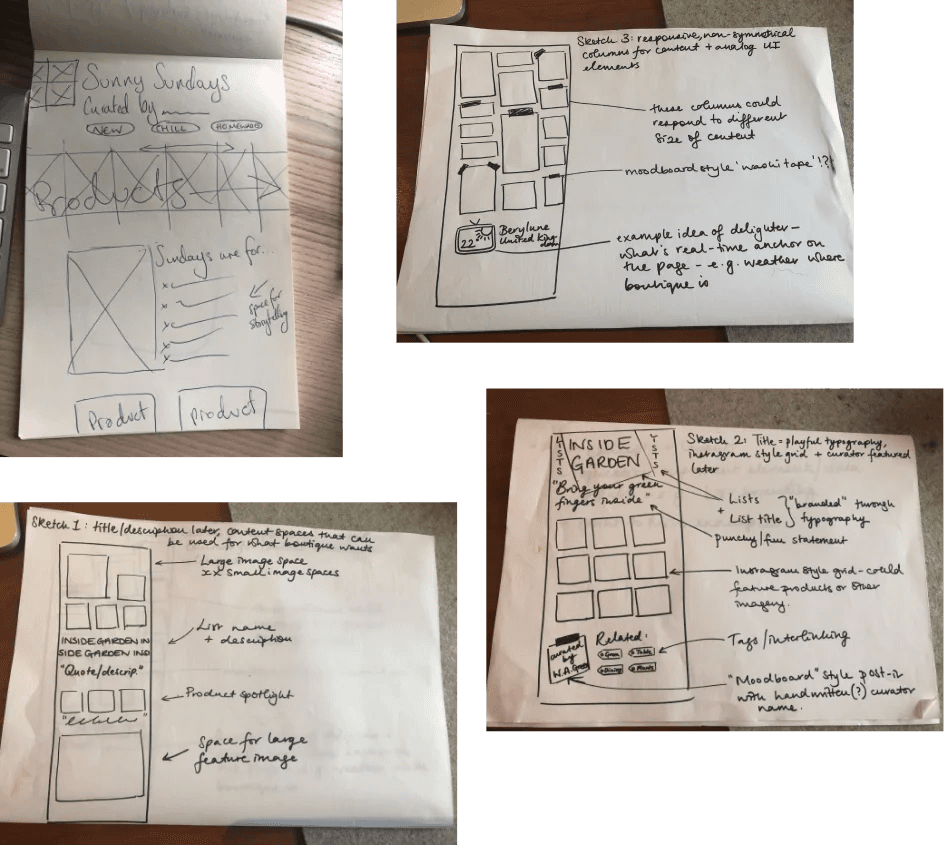 Sunny Sundays
Curated by
NEW
CHILL
HOMEWARE
Products
Sundays are for...
space for
storytelling
Product
Product
Sketch 3: responsive, non-symmetrical
columns for content + analog UI
elements
these columns could
respond to different
size of content
moodboard style 'washi tape'!?
22
Berylune
United Kingdom
example idea of delighter -
what's real-time anchor on
the page - e.g. weather where
boutique is
Sketch 1: title/description later, content spaces that can
be used for what boutique wants
Large image space
xx small image spaces
INSIDE GARDEN IN
SIDE GARDEN IND
List name
+ description
"Quote/descrip."
Product spotlight
Space for large
feature image
Sketch 2: Title = playful typography,
instagram style grid + curator featured
later
LISTS
INSIDE
GARDEN
LISTS
"Bring your green
fingers inside"
Lists
+
List title
"branded" through
typography
punchy/fun statement
Instagram style grid - could
feature products or other
imagery.
curated
by
Related:
Green
Table
Dining
Plants
Tags/interlinking
"Moodboard" style post-it
with handwritten(?) curator
name.